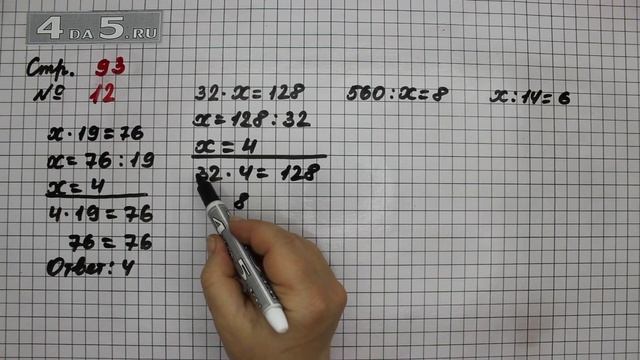 4 DA 5.RU
Стр. 93
№ 12
x · 19 = 76
x = 76 : 19
x = 4
4 · 19 = 76
76 = 76
Ответ: 4
32 · x = 128
x = 128 : 32
x = 4
32 · 4 = 128
8
560 : x = 8
x : 14 = 6